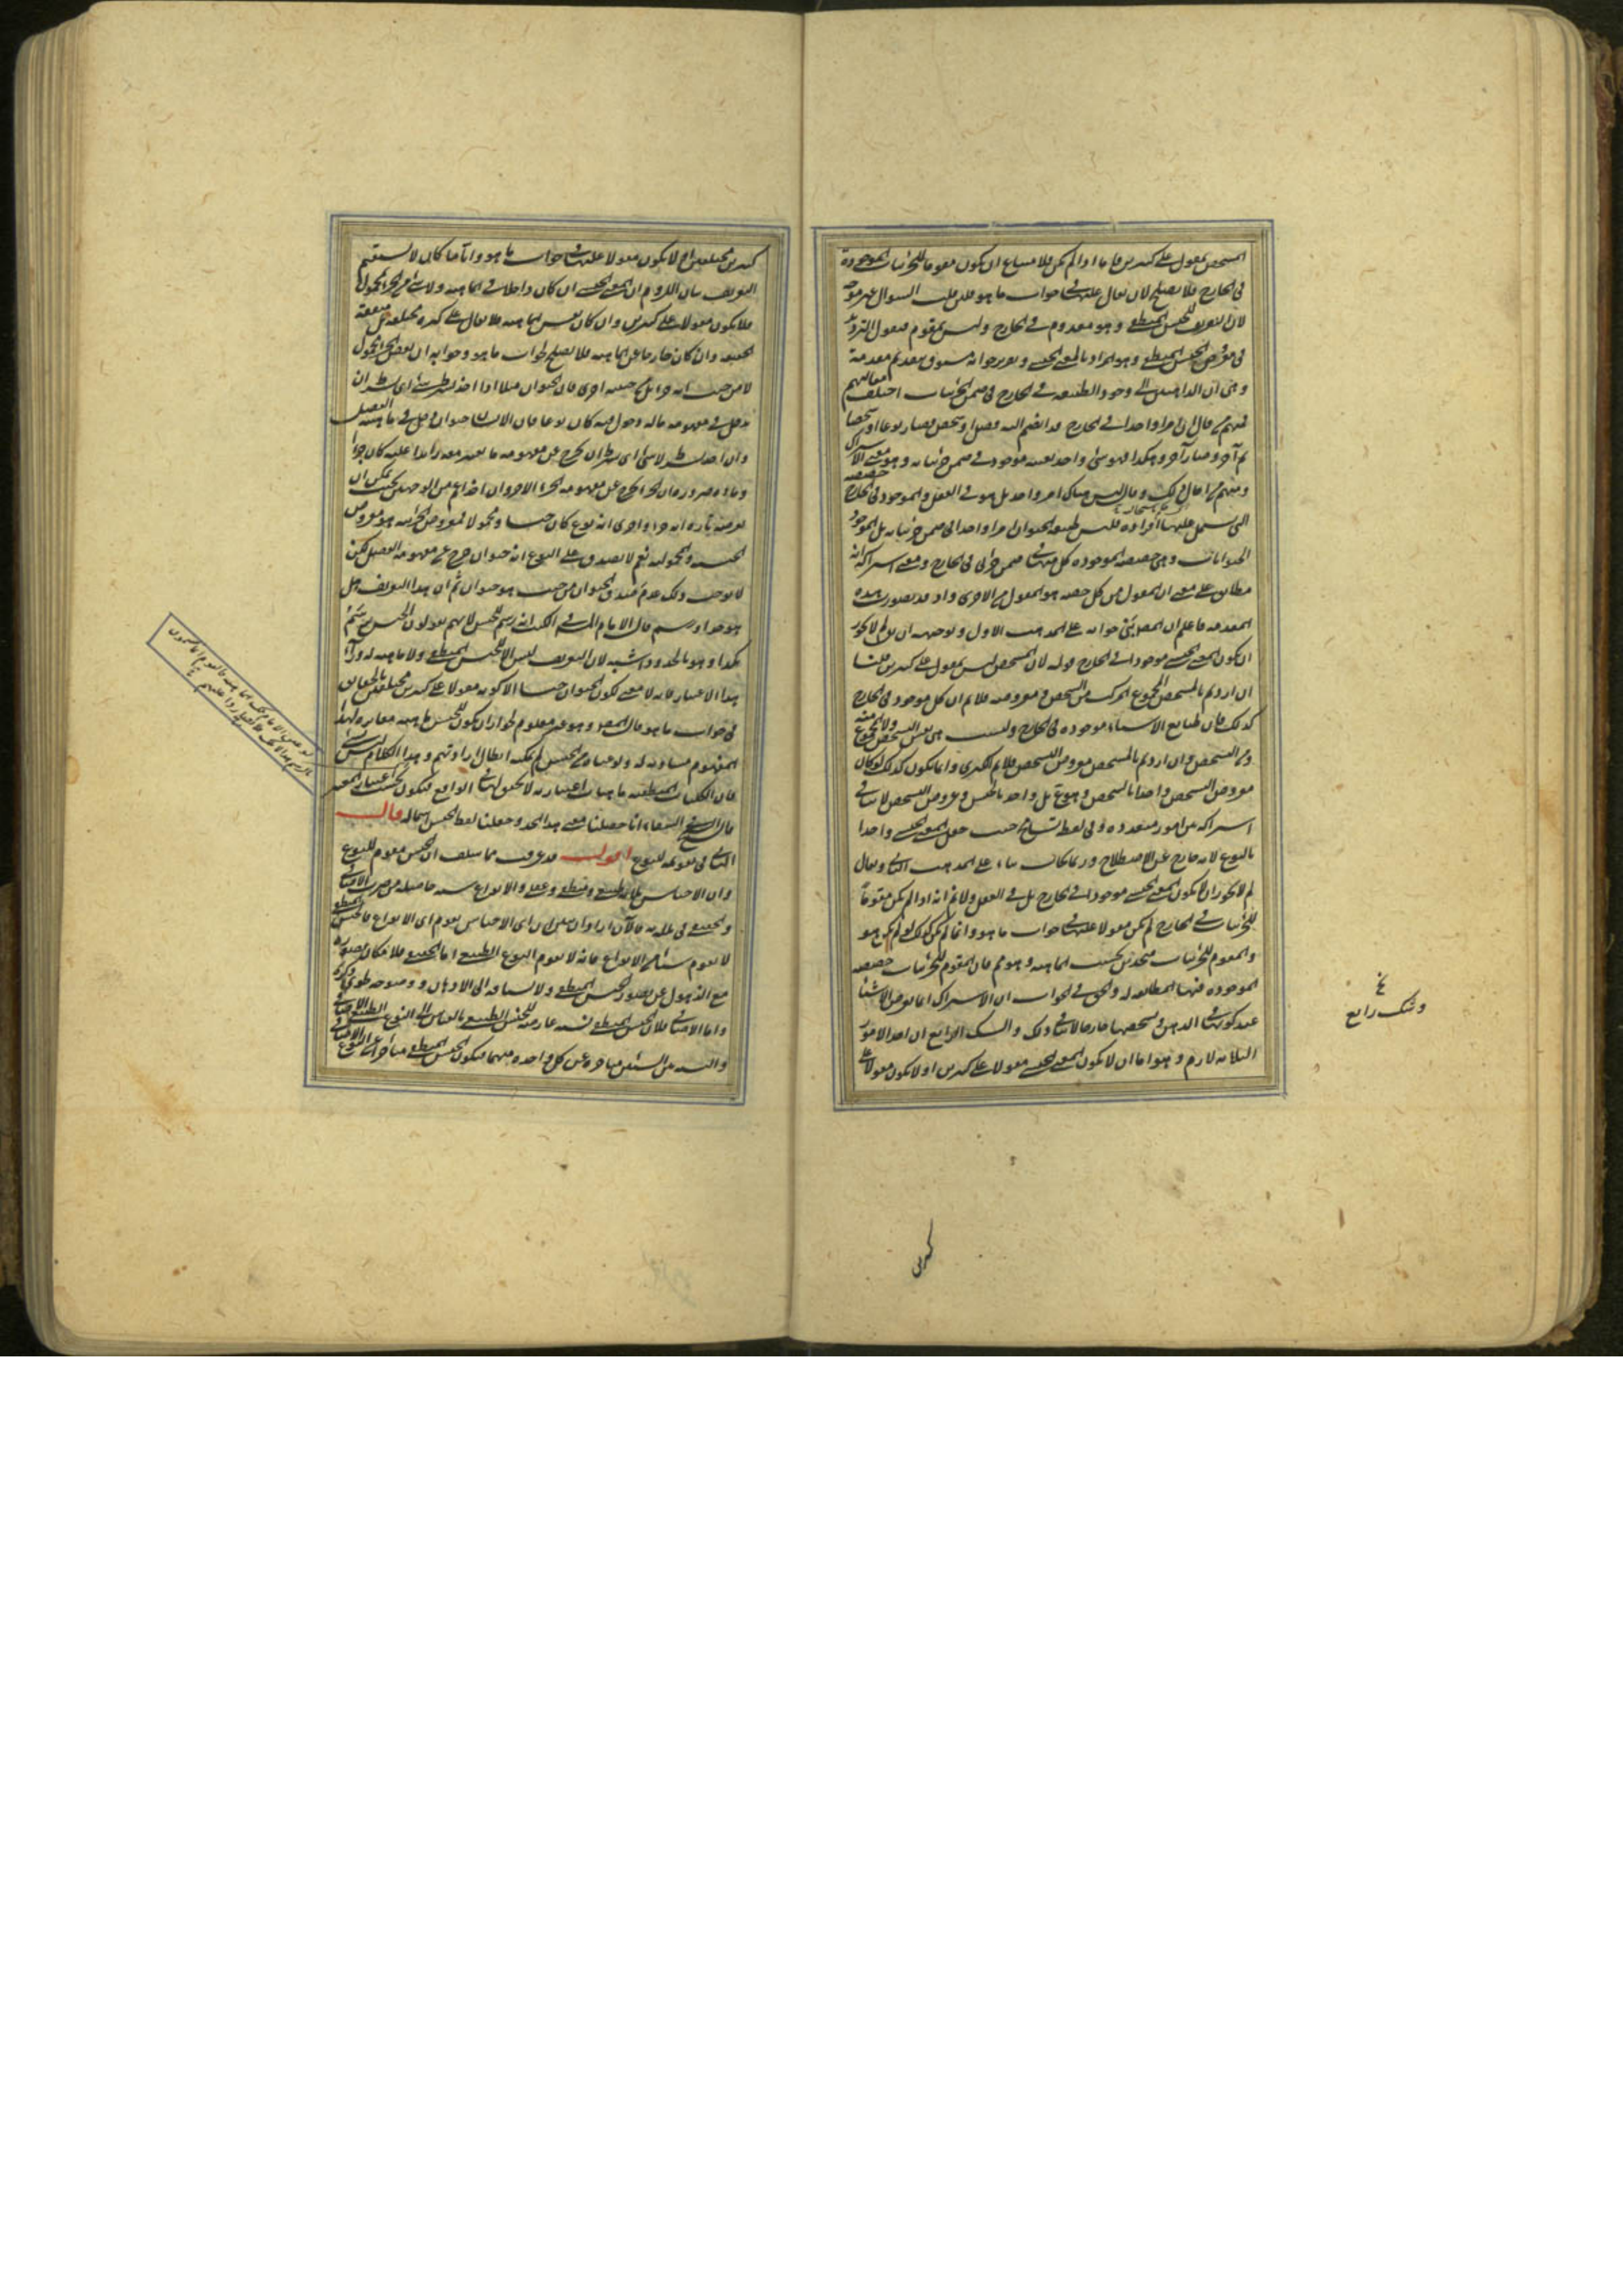 المشخص بمعقول على كثيرين فاما اذا لم يكن فلا امتناع ان يكون مقوما للجزئيات الموجودة
في الخارج فلا يصلح لان يقال عليها في جواب ما هو فلئن قلت السؤال غير موجه
لان التعريف للجنس المنطقى وهو معدوم في الخارج وليس بمقوم فنقول الترديد
في معروض الجنس المنطقى وهو المراد بالمعنى الجنسى وتقرير جوابه مسبوق بتقديم مقدمة
وهي ان الذاهبين الى وجود الطبيعة في الخارج في ضمن الجزئيات اختلف مقالتهم
فمنهم من قال ان امرا واحدا في الخارج قد انضم اليه فصل او تشخص فصار نوعا او شخصا
ثم آخر وصار آخر وهكذا فهو شئ واحد بعينه موجود في ضمن جزئياته وهو معنى الاشتراك
ومنهم من احال ذلك وقال ليس هناك امر واحد بل هو في العقل والموجود في الخارج حصصه
التي يشتمل عليها افراده فليس طبيعة الحيوان امرا واحدا في ضمن جزئياته بل الموجود
الحيوانات وهي حصصه الموجودة كل منها في ضمن جزئى في الخارج ومعنى اشتراكه انه
مطابق على معنى ان المعقول من كل حصة هو المعقول من الاخرى واذ قد تصورت هذه
المقدمة فاعلم ان المصنف بنى جوابه على المذهب الاول وتوجيهه ان يقال لم لا يجوز
ان يكون المعنى الجنسى موجودا في الخارج قوله لان المشخص ليس بمقول على كثيرين قلنا
ان اردتم بالمشخص المجموع المركب من التشخص ومعروضه فلا نم ان كل موجود في الخارج
كذلك فان طبايع الاشياء موجودة في الخارج وليست هي نفس التشخص ولا المجموع منه
ومن التشخص وان اردتم بالمشخص معروض التشخص فلا نم الكبرى وانما يكون كذلك لو كان
معروض التشخص واحدا بالشخص وهو مم بل واحد بالجنس وعروض التشخص لا ينافي
اشتراكه بين امور متعددة وفي لفظه تسامح حيث جعل المعنى الجنسى واحدا
بالنوع لانه خارج عن الاصطلاح وربما يجاب بناء على المذهب الثاني ويقال
لم لا يجوز ان لا يكون المعنى الجنسى موجودا في الخارج بل في العقل ولا نم انه اذا لم يكن مقوما
للجزئيات في الخارج لم يكن مقولا عليها في جواب ما هو وانما لم يكن كذلك لو لم يكن هو
والمقوم للجزئيات متحدين بحسب الماهية وهو مم فان المقوم للجزئيات حصصه
الموجودة فيها المطابقة له والحق في الجواب ان الاشتراك انما يعرض الاشياء
عند كونها في الذهن وتشخصها خارجا لا ينافي ذلك والشك الرابع ان احد الامور
الثلاثة لازم وهو اما ان لا يكون المعنى الجنسى مقولا على كثيرين او لا يكون مقولا على
وشك رابع
كثيرين
كثيرين مختلفين او لا يكون مقولا عليها في جواب ما هو واياما كان لا يستقيم
التعريف بيان اللزوم ان المعنى الجنسى ان كان داخلا في الماهية ولا شئ من الجزء بمحمول
فلا يكون مقولا على كثيرين وان كان نفس الماهية فلا يقال على كثيرة مختلفة بل متفقة
الحقيقة وان كان خارجا عن الماهية فلا يصلح لجواب ما هو وجوابه ان بعض الجزء محمول
لا من حيث انه جزء بل من حيثية اخرى فان الحيوان مثلا اذا اخذ بشرط شئ اى بشرط ان
يدخل في مفهومه ماله دخول فيه كان نوعا فان الانسان حيوان دخل في ماهيته الفصل
وان اخذ بشرط لا شئ اى بشرط ان يخرج عن مفهومه ما يعتبر معه زائدا عليه كان جزءا
ومادة ضرورة ان الجزء يخرج عن مفهومه الجزء الاخر وان اخذ اعم من الوجهين بحيث يمكن ان
يعرضه تارة انه جزء واخرى انه نوع كان جنسا ومحمولا فمعروض الجزئية هو معروض
الجنسية والمحمولية نعم لا يصدق على النوع انه حيوان خرج عن مفهومه الفصل لكن
لا يوجب ذلك عدم صدق الحيوان من حيث هو حيوان ثم ان هذا التعريف هل
هو حد او رسم قال الامام الى في الكتاب انه رسم للجنس لانهم يقولون الجنس يرسم
بكذا وهو بالحد اشبه لان التعريف ليس الا للجنس المنطقى ولا ماهية له وراء
هذا الاعتبار فانه لا معنى لكون الحيوان جنسا الا كونه مقولا على كثيرين مختلفين بالحقايق
في جواب ما هو قال المصنف وهو غير معلوم لجواز ان يكون للجنس ماهية مغايرة لهذا
المفهوم مساوية له ولو عناه من الجنس لم يمكنه ابطال ارادتهم وهذا الكلام ليس بشئ
فان الكليات المنطقية ماهيات اعتبارية لا تحقق لها في الواقع فيكون بحسب اعتبار المعتبر
قال الشيخ في الشفاء انا حصلنا معنى هذا الحد وجعلنا لفظ الجنس اسما له قال
الثاني في تقويمه للنوع اقول قد عرفت مما سلف ان الجنس مقوم للنوع
وان الاجناس ثلاثة طبيعى ومنطقى وعقلى والانواع ستة حاصلة من ضرب الاضافى
والحقيقى في ثلاثة فالآن اراد ان يبين ان اى الاجناس يقوم اى الانواع فالجنس المنطقى
لا يقوم شيئا من الانواع فانه لا يقوم النوع الطبيعى اما الحقيقى فلامكان تصوره
مع الذهول عن تصور الجنس المنطقى
واما الاضافى فلان الجنس المنطقى نسبة عارضة للجنس الطبيعى بالقياس الى النوع الطبيعى الاضافى
والنسبة بين الشيئين متأخرة عن كل واحدة منهما فيكون الجنس المنطقى متأخرا عن النوع الاضافى